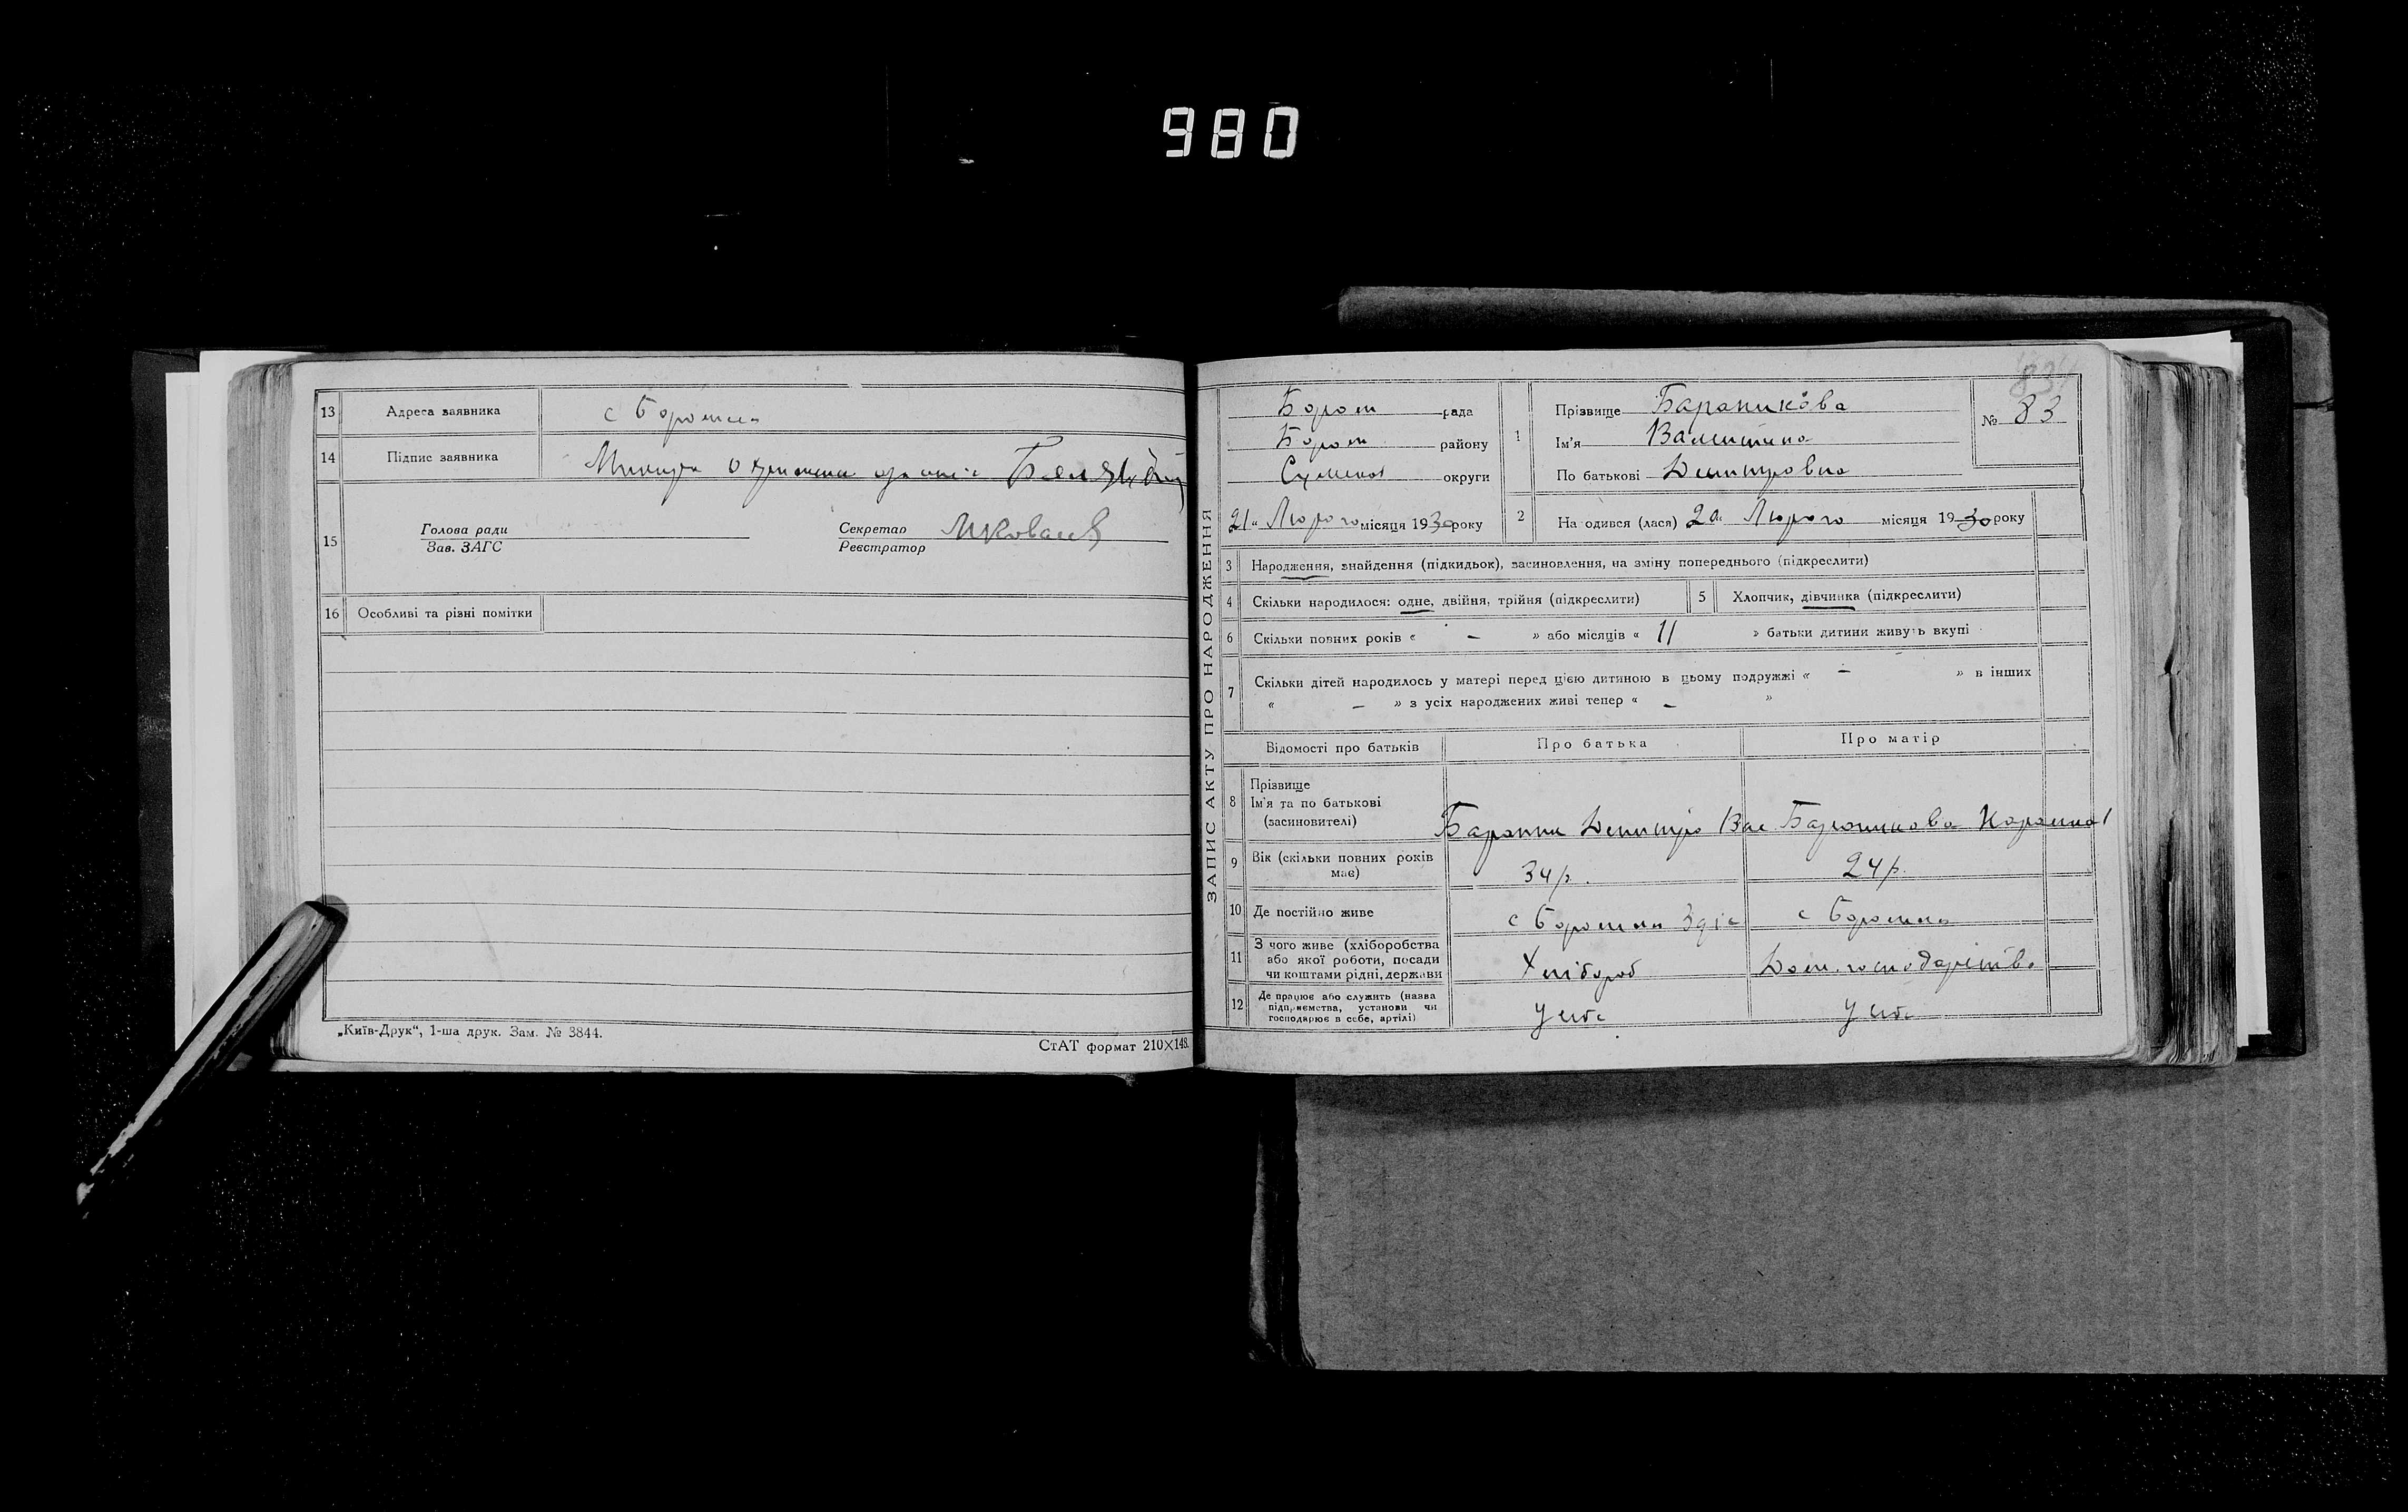 980
13 Адреса заявника с Боромля
14 Підпис заявника
15 Голова ради
Зав. ЗАГС
Секретар
Реєстратор
16 Особливі та різні помітки
„Київ-Друк“, 1-ша друк. Зам. № 3844.
СтАТ формат 210×148.
ЗАПИС АКТУ ПРО НАРОДЖЕННЯ
Бором рада
Бором району
Сумської округи
21 „ Лютого місяця 1930 року
1 Прізвище Бараникова
Ім'я Валентина
По батькові Дмитровна
№ 83
2 На одився (лася) 20 „ Лютого місяця 1930 року
3 Народження, знайдення (підкидьок), засиновлення, на зміну попереднього (підкреслити)
4 Скільки народилося: одне, двійня, трійня (підкреслити)
5 Хлопчик, дівчинка (підкреслити)
6 Скільки повних років « – » або місяців « 11 » батьки дитини живуть вкупі
7 Скільки дітей народилось у матері перед цією дитиною в цьому подружжі « – » в інших
« – » з усіх народжених живі тепер « – »
Відомості про батьків Про батька Про матір
8 Прізвище
Ім'я та по батькові
(засиновителі)
Дмитро Вас. Бараникова
9 Вік (скільки повних років має) 34 р. 24 р.
10 Де постійно живе с Боромля с Боромля
11 З чого живе (хліборобства
або якої роботи, посади
чи коштами рідні, держави
Хлібороб Дом. господарство
12 Де працює або служить (назва
підприємства, установи чи
господарює в себе, артілі)
У себе У себе